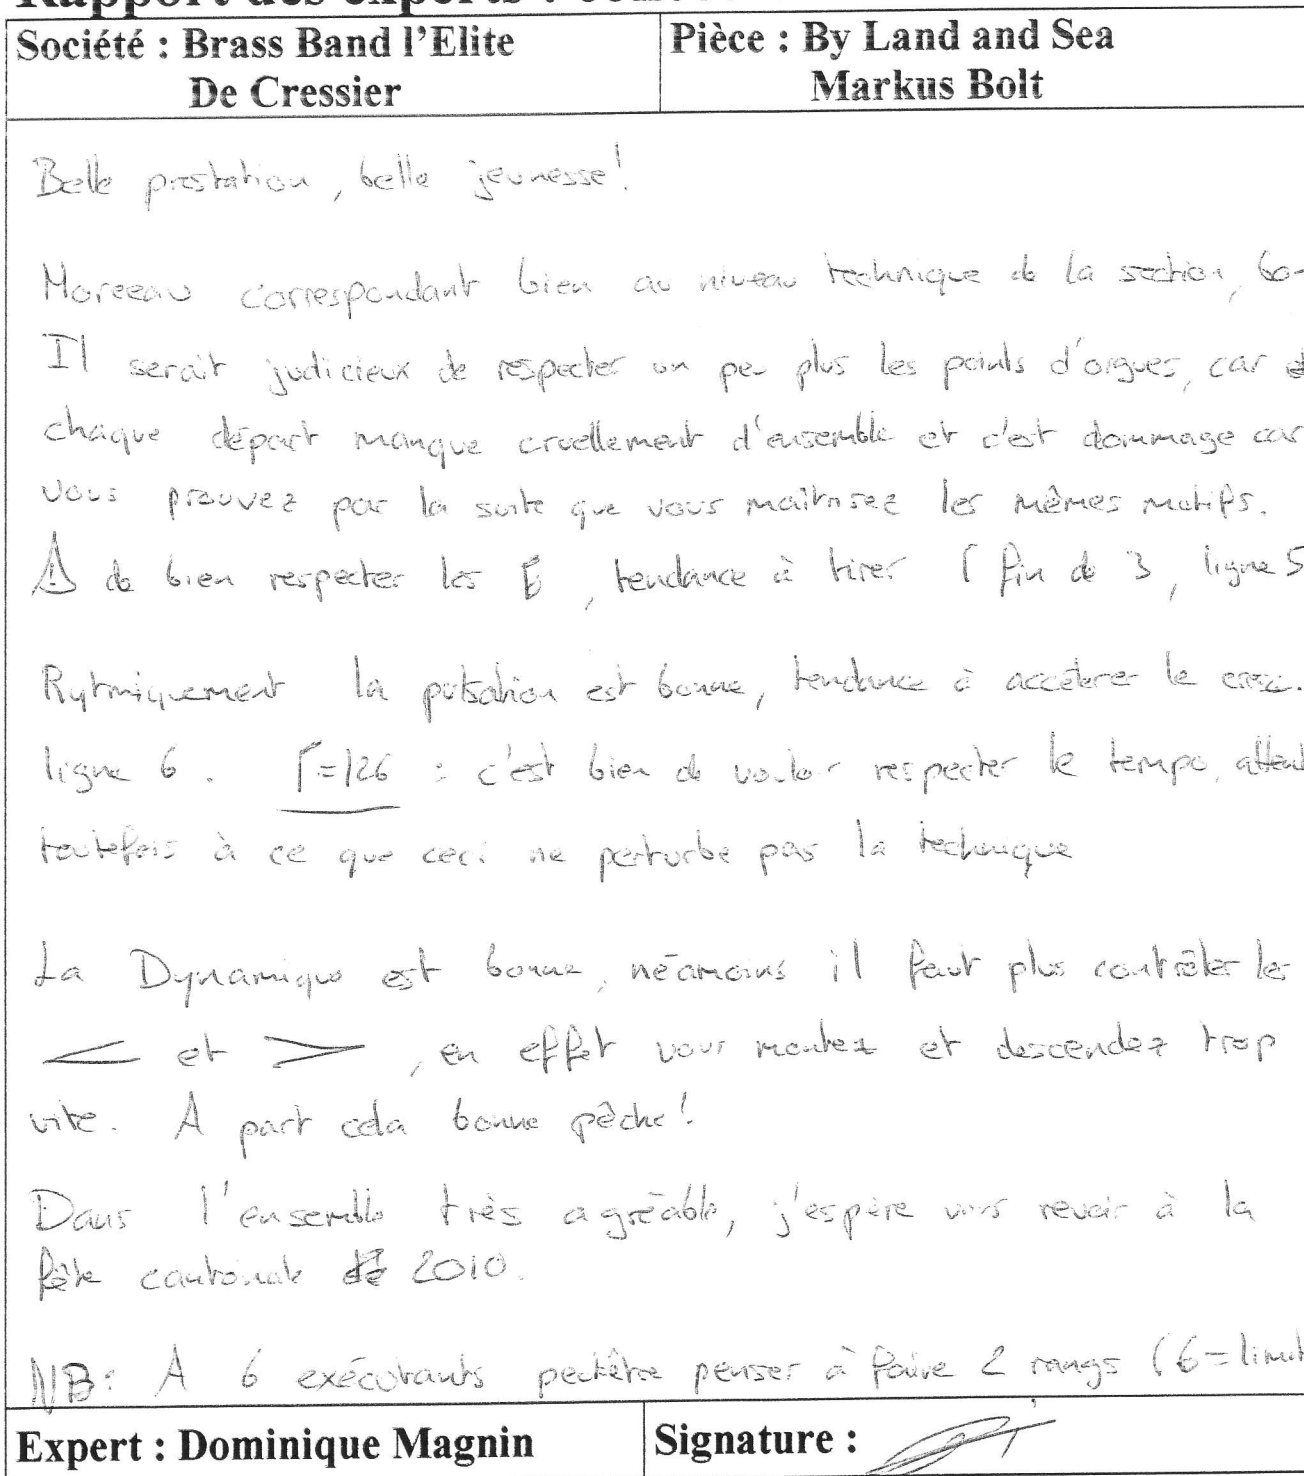 Rapport des experts :
Société : Brass Band l'Elite
De Cressier
Pièce : By Land and Sea
Markus Bolt
Belle prestation, belle jeunesse!
Morceau correspondant bien au niveau technique de la section,
Il serait judicieux de respecter un peu plus les points d'orgues, car
chaque départ manque cruellement d'ensemble et c'est dommage car
vous prouvez par la suite que vous maîtrisez les mêmes motifs.
de bien respecter les , tendance à tirer fin de 3, ligne 5
Rytmiquement la pulsation est bonne, tendance à accélerer le cresc.
ligne 6. =126 : c'est bien de vouloir respecter le tempo,
toutefois à ce que ceci ne perturbe pas la technique
La Dynamique est bonne, néamoins il faut plus contrôler les
< et >, en effet vous montez et descendez trop
vite. A part cela bonne pêche!
Dans l'ensemble très agréable, j'espère vous revoir à la
fête cantonale 2010.
NB: A 6 exécutants peutêtre penser à faire 2 rangs (6=limit
Expert : Dominique Magnin
Signature :